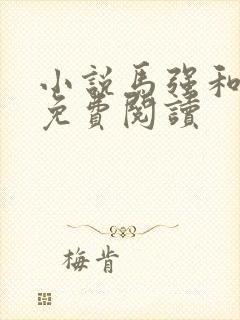 小説馬强和
免費閱讀
梅肯